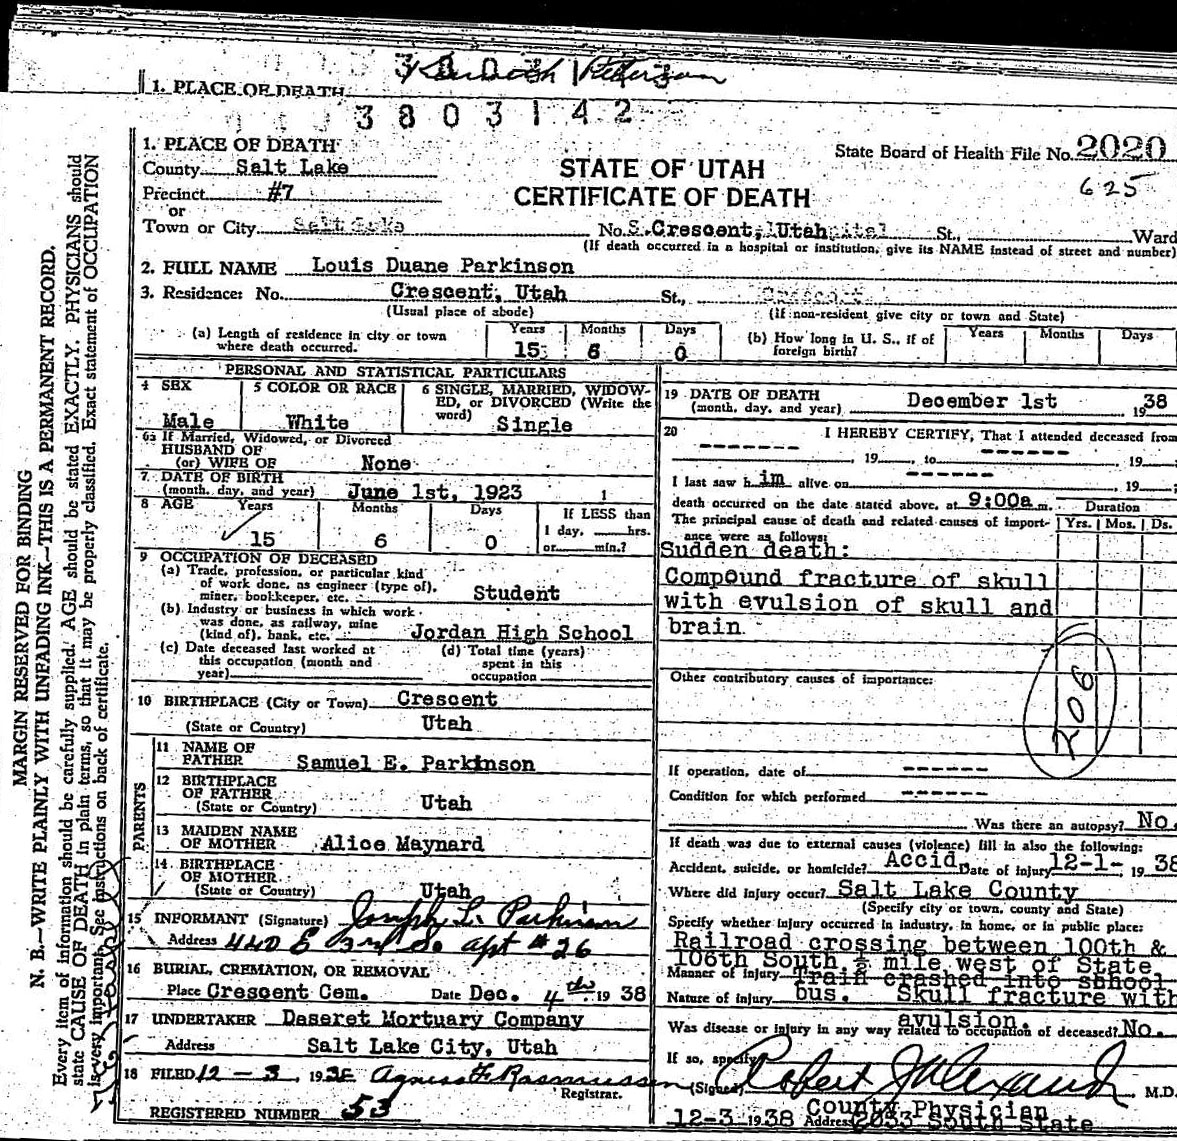 3803142
1. PLACE OF DEATH
3803142
1. PLACE OF DEATH
County Salt Lake
Precinct #7
or
Town or City Salt Lake
STATE OF UTAH
CERTIFICATE OF DEATH
State Board of Health File No. 2020
625
No. S. Crescent, Utah St., Ward
(If death occurred in a hospital or institution, give its NAME instead of street and number)
2. FULL NAME Louis Duane Parkinson
3. Residence: No. Crescent, Utah St., Crescent
(Usual place of abode) (If non-resident give city or town and State)
(a) Length of residence in city or town where death occurred. Years 15 Months 6 Days 0
(b) How long in U. S., if of foreign birth? Years Months Days
PERSONAL AND STATISTICAL PARTICULARS
4 SEX Male
5 COLOR OR RACE White
6 SINGLE, MARRIED, WIDOWED, or DIVORCED (Write the word) Single
6a If Married, Widowed, or Divorced
HUSBAND OF
(or) WIFE OF None
7 DATE OF BIRTH
(month, day, and year) June 1st, 1923 1
8 AGE Years 15 Months 6 Days 0
If LESS than
1 day, hrs.
or min.?
9 OCCUPATION OF DECEASED
(a) Trade, profession, or particular kind
of work done, as engineer (type of),
miner, bookkeeper, etc. Student
(b) Industry or business in which work
was done, as railway, mine
(kind of), bank, etc. Jordan High School
(c) Date deceased last worked at
this occupation (month and
year)
(d) Total time (years)
spent in this
occupation
10 BIRTHPLACE (City or Town) Crescent
(State or Country) Utah
PARENTS
11 NAME OF
FATHER Samuel E. Parkinson
12 BIRTHPLACE
OF FATHER
(State or Country) Utah
13 MAIDEN NAME
OF MOTHER Alice Maynard
14 BIRTHPLACE
OF MOTHER
(State or Country) Utah
15 INFORMANT (Signature) Joseph L. Parkinson
Address 440 E 3rd So apt #26
16 BURIAL, CREMATION, OR REMOVAL
Place Crescent Cem. Date Dec. 4th 1938
17 UNDERTAKER Deseret Mortuary Company
Address Salt Lake City, Utah
18 FILED 12-3, 1938 Agnes F. Rasmussen
Registrar.
REGISTERED NUMBER 53
19 DATE OF DEATH
(month, day, and year) December 1st 1938
20 I HEREBY CERTIFY, That I attended deceased from
------- 19 , to ------ , 19
I last saw him alive on ------ , 19
death occurred on the date stated above, at 9:00a m.
The principal cause of death and related causes of importance were as follows:
Duration
Yrs. Mos. Ds.
Sudden death:
Compound fracture of skull
with evulsion of skull and
brain
206
Other contributory causes of importance:
If operation, date of ------
Condition for which performed ------
Was there an autopsy? No.
If death was due to external causes (violence) fill in also the following:
Accident, suicide, or homicide? Accid. Date of injury 12-1-, 1938
Where did injury occur? Salt Lake County
(Specify city or town, county and State)
Specify whether injury occurred in industry, in home, or in public place:
Railroad crossing between 100th &
106th South ½ mile west of State
Manner of injury Train crashed into school
bus.
Nature of injury Skull fracture with
avulsion.
Was disease or injury in any way related to occupation of deceased? No.
If so, specify
(Signed) Robert J Alexander M.D.
County Physician
12-3 1938 Address 2033 South State
MARGIN RESERVED FOR BINDING
N. B.—WRITE PLAINLY WITH UNFADING INK—THIS IS A PERMANENT RECORD.
Every item of information should be carefully supplied. AGE should be stated EXACTLY. PHYSICIANS should
state CAUSE OF DEATH in plain terms, so that it may be properly classified. Exact statement of OCCUPATION
is very important. See instructions on back of certificate.